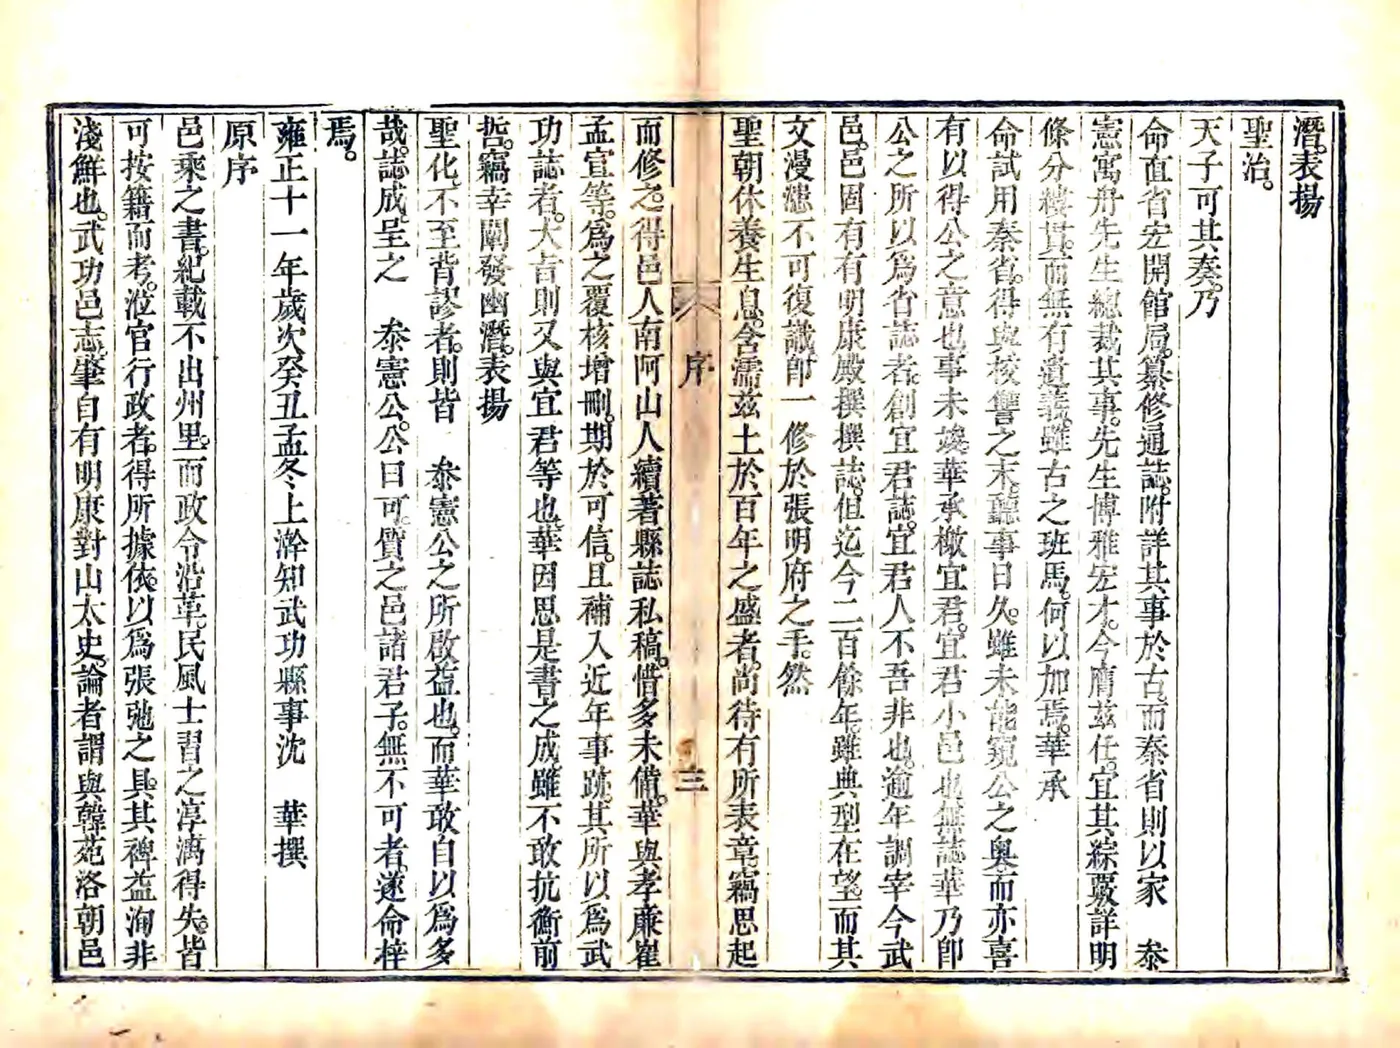 潛。表揚
聖治。
天子可其奏。乃
命直省宏開館局。纂修通誌。附詳其事於古。而秦省則以家　泰
憲寓舟先生總裁其事。先生博雅宏才。今膺茲任。宜其綜覈詳明
條分縷貫。而無有遺義。雖古之班馬。何以加焉。華承
命試用秦省。得與校讐之末。聽事日久。雖未能窺公之奥。而亦喜
有以得公之意也。事未竣。華承檄宜君。宜君小邑也。無誌。華乃卽
公之所以爲省誌者。創宜君誌。宜君人不吾非也。逾年調宰今武
邑。邑固有有明康殿撰撰誌。但迄今二百餘年。雖典型在望。而其
文漫漶不可復識。卽一修於張明府之手。然
聖朝休養生息。含濡茲土於百年之盛者。尚待有所表章。竊思起
序
三
而修之。得邑人南阿山人續著縣誌私稿。惜多未備。華與孝廉崔
孟宣等。爲之覆核增刪。期於可信。且補入近年事跡。其所以爲武
功誌者。大㫖則又與宜君等也。華因思是書之成。雖不敢抗衡前
哲。竊幸闡發幽潛。表揚
聖化。不至背謬者。則皆　泰憲公之所啟益也。而華敢自以爲多
哉。誌成。呈之　泰憲公。公曰可。質之邑諸君子。無不可者。遂命梓
焉。
雍正十一年歲次癸丑孟冬上澣知武功縣事沈　華撰
原序
邑乘之書。紀載不出州里。而政令沿革。民風士習之淳漓得失。皆
可按籍而考。涖官行政者。得所據依。以爲張弛之具。其裨益洵非
淺鮮也。武功邑志。肇自有明康對山太史。論者謂與韓苑洛朝邑